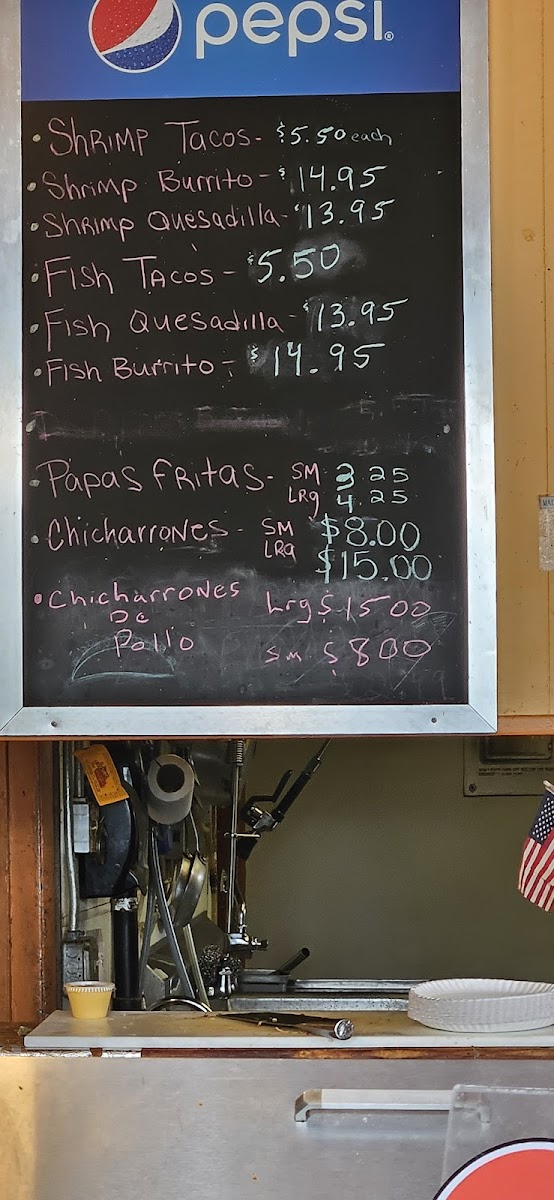 pepsi®
• Shrimp Tacos - $5.50 each
• Shrimp Burrito - $14.95
• Shrimp Quesadilla - $13.95
• Fish Tacos - $5.50
• Fish Quesadilla - $13.95
• Fish Burrito - $14.95
• Papas Fritas - SM 3 25
LRg 4 25
• Chicharrones - SM $8.00
LRg $15.00
• Chicharrones Lrg $1500
De
Pollo Sm $800